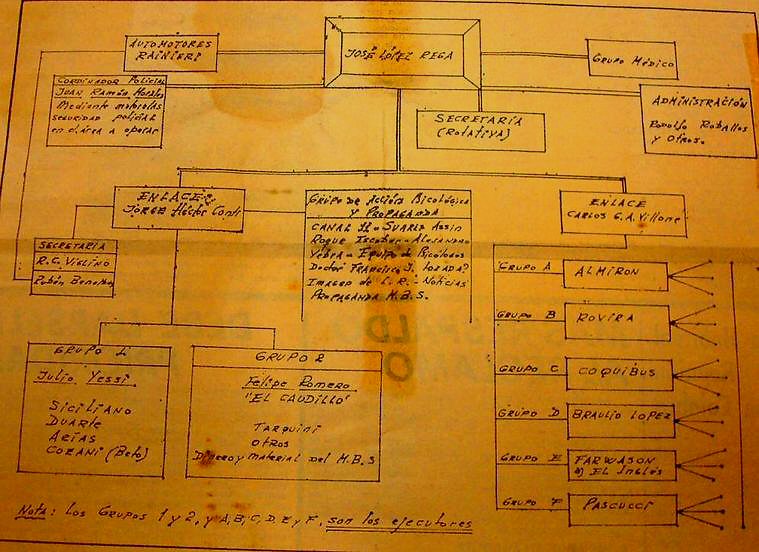 JOSÉ LÓPEZ REGA
AUTOMOTORES
RAINIERI
GRUPO MÉDICO
COORDINADOR POLICIAL
JUAN RAMÓN Morales
Mediante motorolas
seguridad policial
en el área a operar
SECRETARIA
(ROTATIVA)
ADMINISTRACIÓN
Rodolfo Roballos
y Otros.
ENLACE:
JORGE Héctor Conti
GRUPO DE ACCIÓN PSICOLÓGICA
Y PROPAGANDA
CANAL 11 - SUAREZ Assin
Roque Escobar - Alejandro
Yebra - Equipo de Psicólogos
Doctor FRANCISCO J. LOZADA?
Imagen de L.R. - Noticias
PROPAGANDA M.B.S.
ENLACE
CARLOS G.A. Villone
SECRETARIA
R.C. VIGLINO
Rubén Benetti
GRUPO A ALMIRON
GRUPO B ROVIRA
GRUPO C COQUIBUS
GRUPO D BRAULIO LOPEZ
GRUPO E FARWASON
EL INGLÉS
GRUPO F PASCUCCI
GRUPO 1
Julio Yessi
SICILIANO
DUARTE
ARIAS
COZANI (Beto)
GRUPO 2
Felipe Romero
"EL CAUDILLO"
TARQUINI
OTROS
Dinero y material del M.B.S
Nota: Los GRUPOS 1 y 2, y A, B, C, D, E y F, son los ejecutores